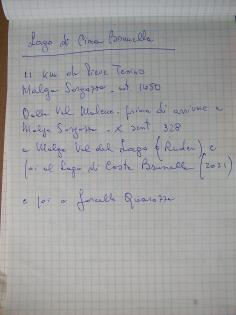 Lago di Cima Brunella
11 km da Pieve Tesino
Malga Sorgazza mt 1450
Dalla Val Malene prima di arrivare a
Malga Sorgazza x sent 328
a Malga Val del Lago (Ruderi) e
poi al Lago di Costa Brunella (2021)
e poi a forcella Quarazza